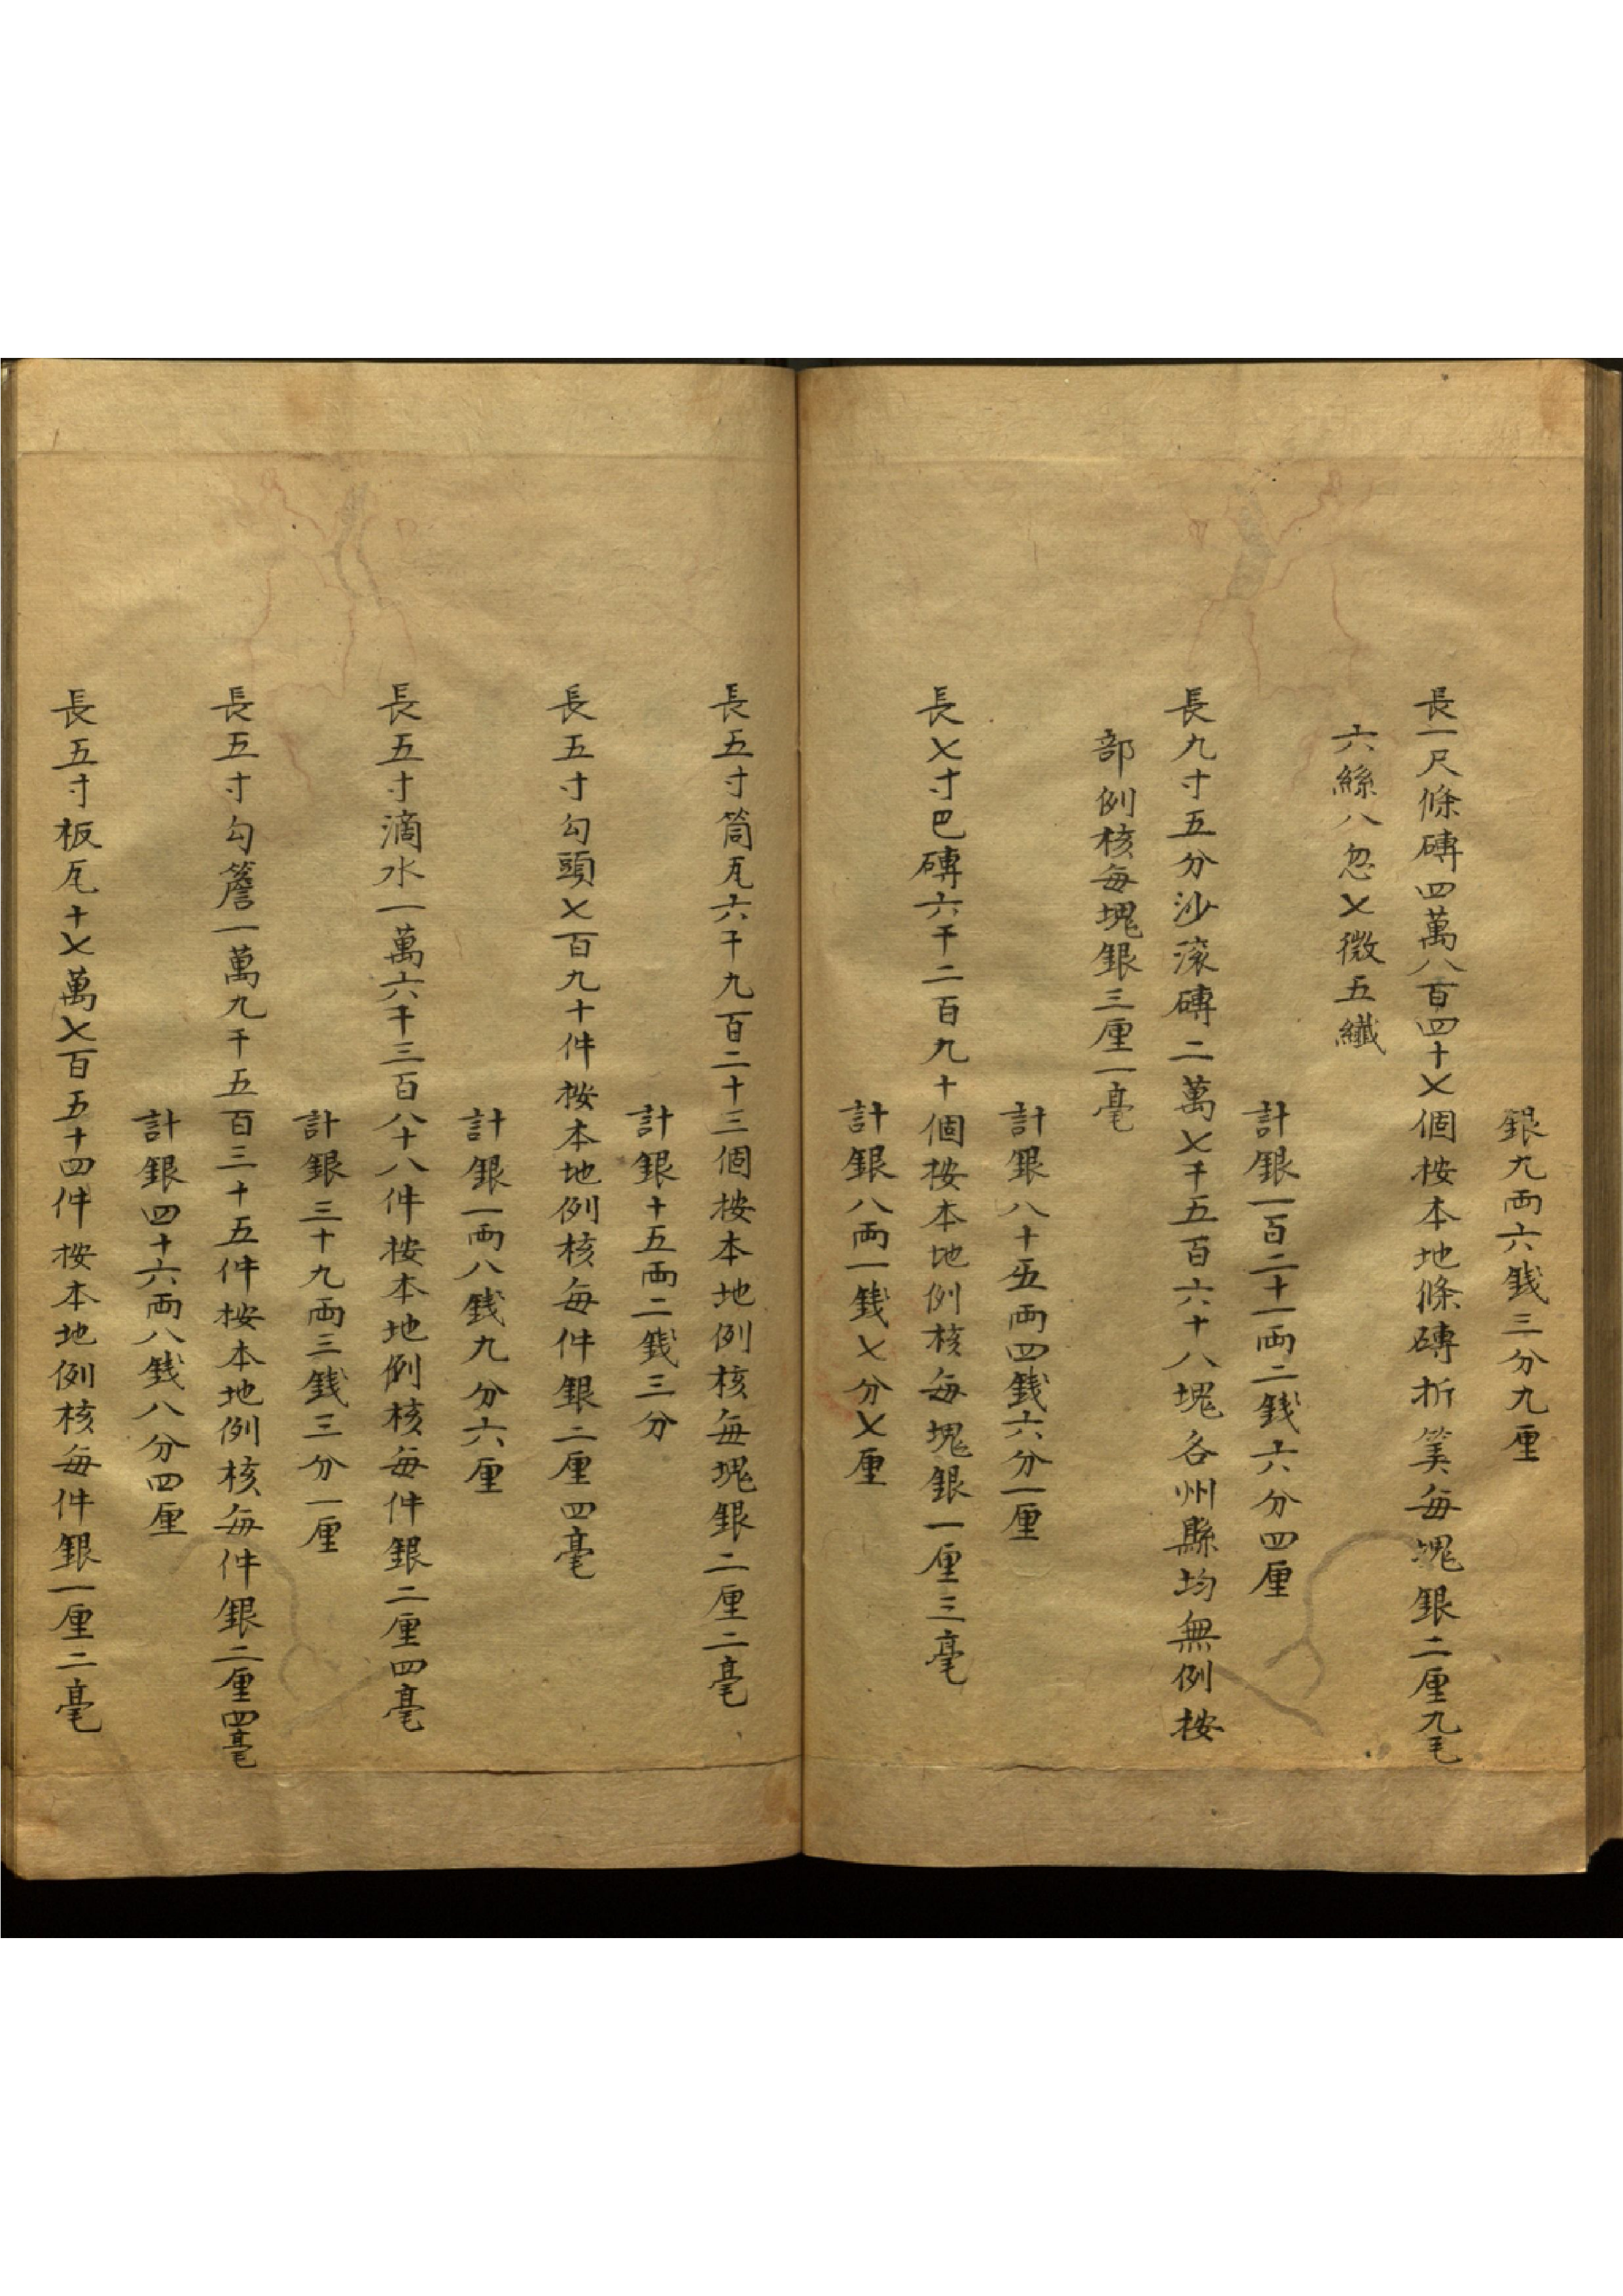 銀九両六銭三分九厘
長一尺條磚四萬八百四十七個按本地條磚折筭每塊銀二厘九毛
六絲八忽七微五纖
計銀一百二十一両二銭六分四厘
長九寸五分沙滚磚二萬七千五百六十八塊各州縣均無例按
部例核每塊銀三厘一毫
計銀八十五両四銭六分一厘
長七寸巴磚六千二百九十個按本地例核每塊銀一厘三毫
計銀八両一銭七分七厘
長五寸筒瓦六千九百二十三個按本地例核每塊銀二厘二毫
計銀十五両二銭三分
長五寸勾頭七百九十件按本地例核每件銀二厘四毫
計銀一両八銭九分六厘
長五寸滴水一萬六千三百八十八件按本地例核每件銀二厘四毫
計銀三十九両三銭三分一厘
長五寸勾簷一萬九千五百三十五件按本地例核每件銀二厘四毫
計銀四十六両八銭八分四厘
長五寸板瓦十七萬七百五十四件按本地例核每件銀一厘二毫